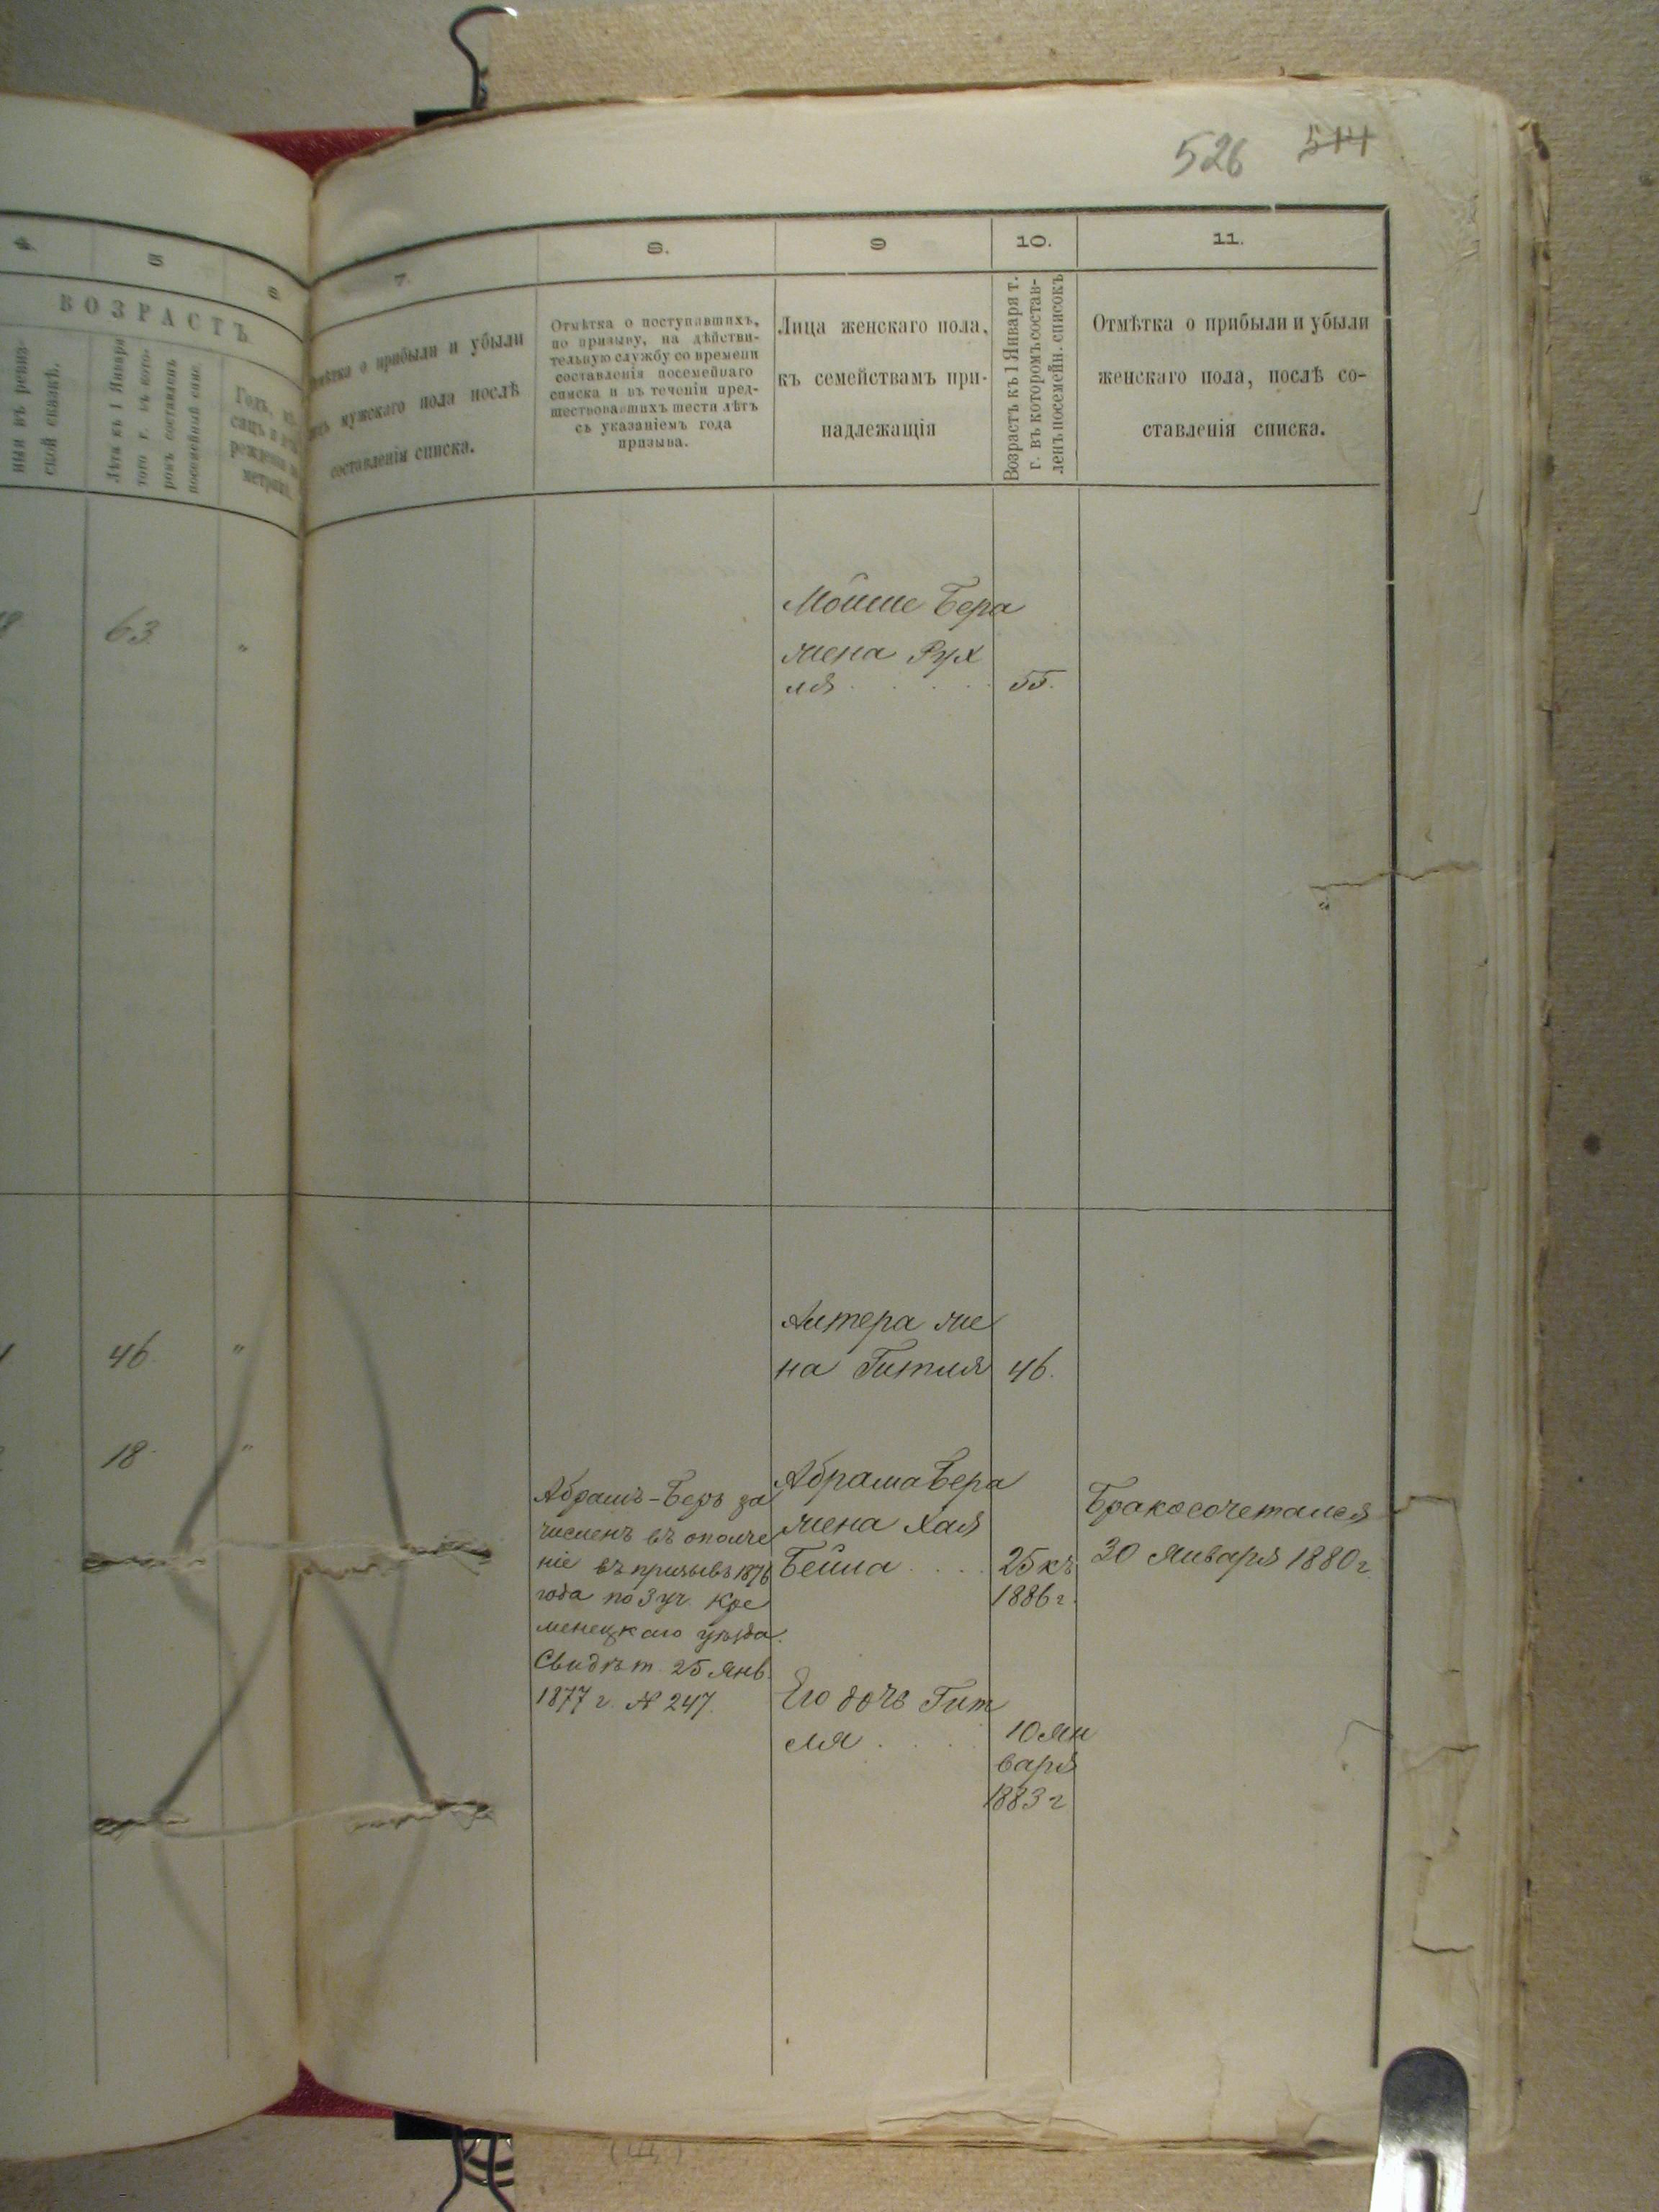 526 514
4. 5 6
7. 8. 9 10. 11.
ВОЗРАСТЪ
ныя въ ревиз-
ской сказкѣ.
Лѣта къ 1 Января
того г. въ кото-
ромъ составленъ
посемейный спис.
Годъ, мѣ-
сяцъ и
рожденія по
метрик.
о прибыли и убыли
мужскаго пола послѣ
составленія списка.
Отмѣтка о поступавшихъ,
по призыву, на дѣйстви-
тельную службу со времени
составленія посемейнаго
списка и въ теченіи пред-
шествовавшихъ шести лѣтъ
съ указаніемъ года
призыва.
Лица женскаго пола,
къ семействамъ при-
надлежащія
Возрастъ къ 1 Января т.
г. въ которомъ состав-
ленъ посемейн. списокъ
Отмѣтка о прибыли и убыли
женскаго пола, послѣ со-
ставленія списка.
63. "
Мошие Бера
жена Рух
ля . . . . 55.
46. "
Литера же
на Гитля 46.
18. "
Абрамъ-Беръ за
численъ въ ополче
ніе въ призывъ 1876
года по 3 уч. Кре
менецкаго уѣзда.
Свидѣт. 25 Янв.
1877 г. № 247.
Абрама Бера
жена Хая
Бейла . . . . 25 къ
1886 г.
Бракосочетался
30 Января 1880 г.
Его дочь Гит
ля . . . . 10 Ян
варя
1883 г